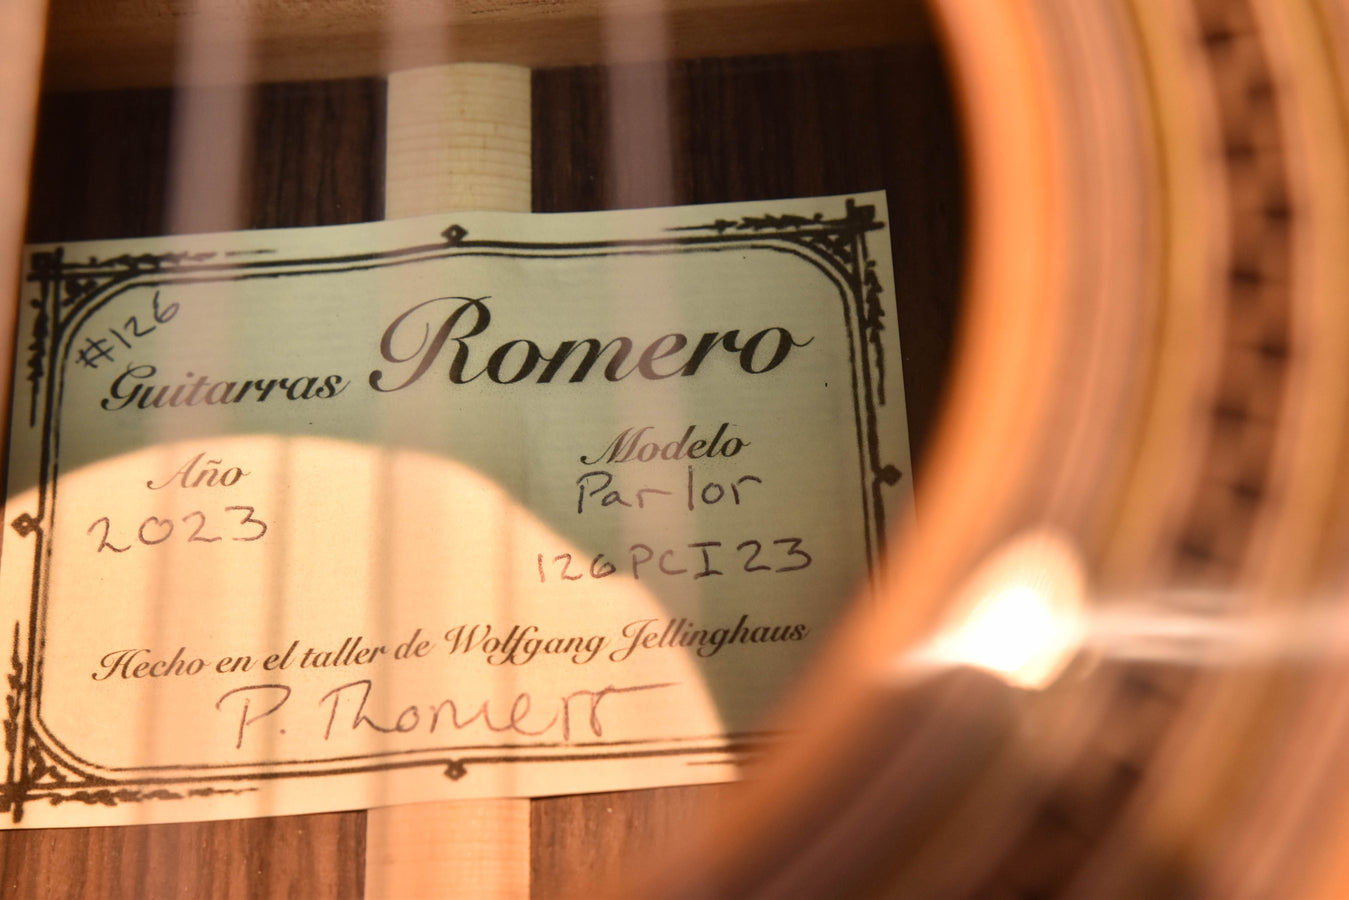 #126
Guitarras Romero
Año
2023
Modelo
Parlor
126PCI23
Hecho en el taller de Wolfgang Jellinghaus
P. Romero